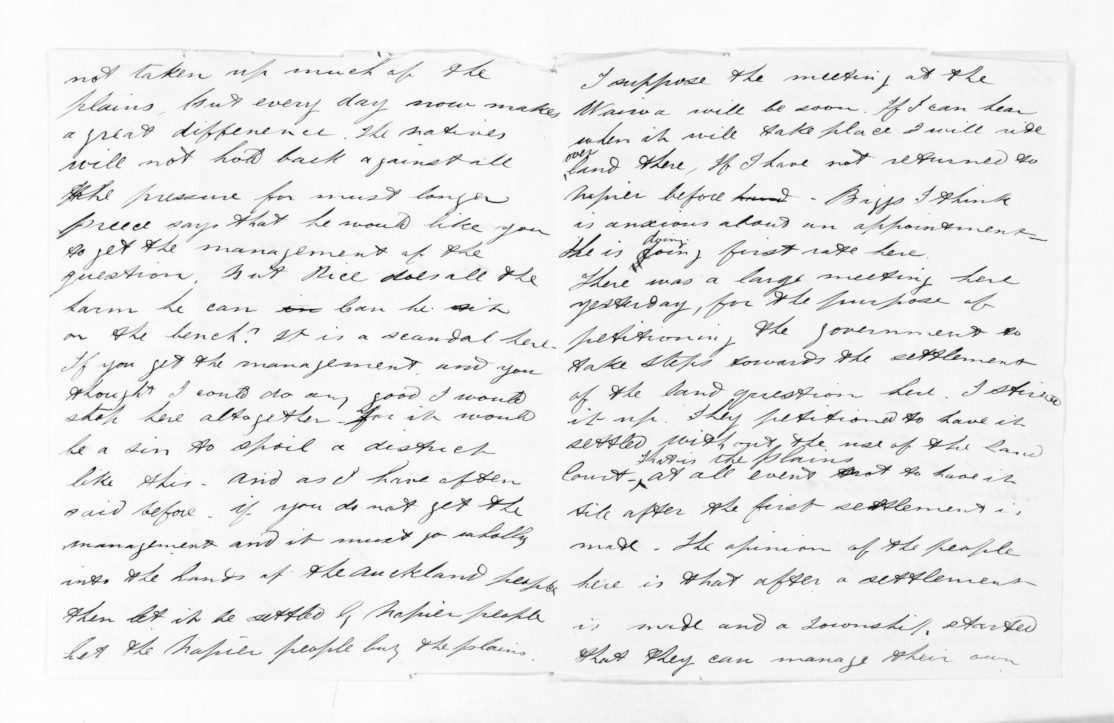 not taken up much of the
plains, but every day now makes
a great difference. The natives
will not hold back against all
the pressure for must longer
Preece says that he would like you
to get the management of the
question, but Rice does all the
harm he can in Can he sit
on the bench? It is a scandal here.
If you get the management and you
thought I could do any good I would
stop here altogether. for it would
be a sin to spoil a district
like this. And as I have often
said before. if you do not get the
management and it must go wholly
into the hands of the Auckland people
then let it be settled by Napier people
let the Napier people buy the plains.
I suppose the meeting at the
Wairoa will be soon. If I can hear
when it will take place I will ride
over
land there, If I have not returned to
Napier before hand - Biggs I think
is anxious about an appointment -
doing
He is going first rate here.
There was a large meeting here
yesterday, for the purpose of
petitioning the government to
take steps towards the settlement
of the land question here. I stirred
it up. They petitioned to have it
settled without the use of the Land
that is the plains
Court -, at all event not to have it
till after the first settlement is
made. The opinion of the people
here is that after a settlement
is made and a township, started
that they can manage their own